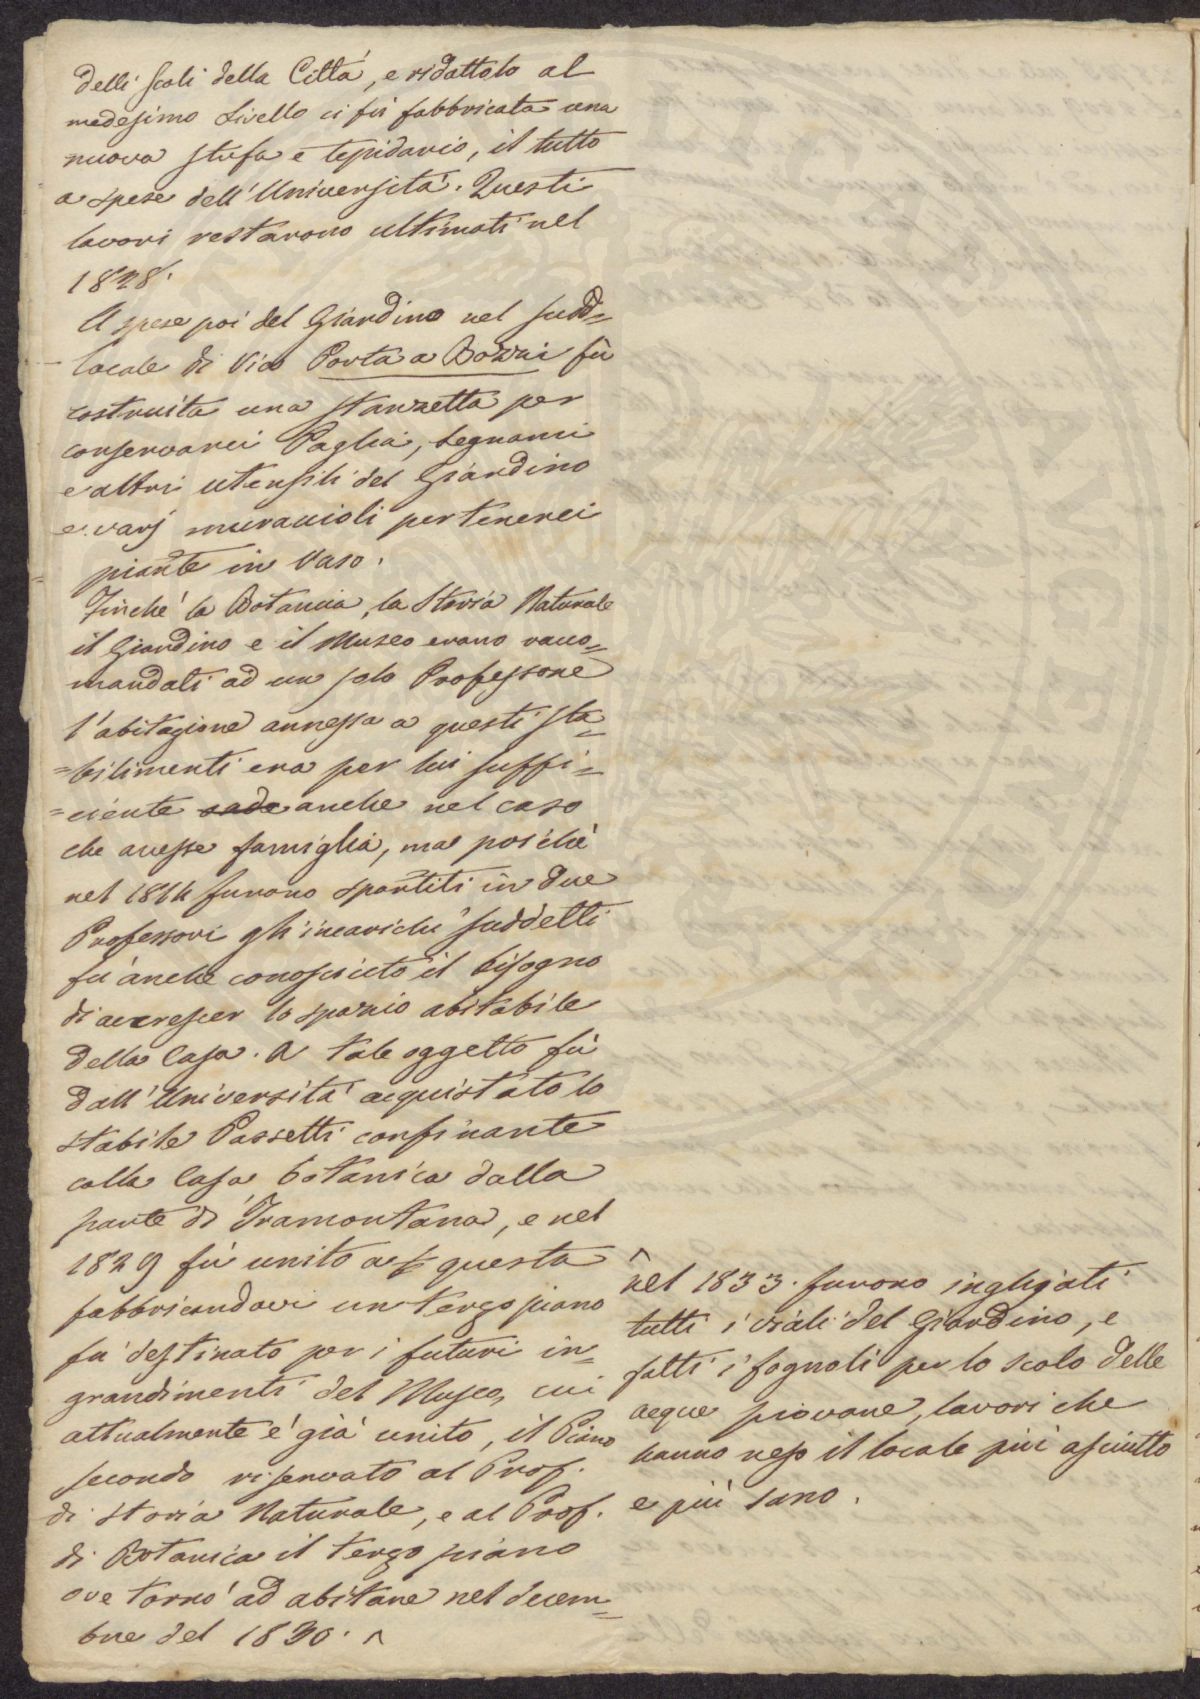 delli scoli della Città, e ridattolo al
medesimo Livello ci fù fabbricata una
nuova stufa e tepidario, il tutto
a spese dell'Università. Questi
lavori restarono ultimati nel
1828.
A spese poi del Giardino nel sudd=
locale di Vico Porta a Bozzi fù
costruita una stanzetta per
conservarci Paglia, Legnami
e altri utensili del Giardino
e varj muraccioli per tenerci
piante in Vaso.
Finchè la Botanica, la Storia Naturale
il Giardino e il Museo erano racco=
mandati ad un solo Professore
l'abitazione annessa a questi sta=
=bilimenti era per lui suffi=
=ciente anche nel caso
che avesse famiglia, ma poichè
nel 1814 furono spartiti in due
Professori gli incarichi suddetti
fù anche conosciuto il bisogno
di accrescer lo spazio abitabile
della Casa. A tale oggetto fù
dall'Università acquistato lo
stabile Passetti confinante
colla Casa botanica dalla
parte di Tramontana, e nel
1829 fù unito a questa
fabbricandovi un terzo piano
fù destinato per i futuri in=
grandimenti del Museo, cui
attualmente è già unito, il Piano
secondo riservato al Prof.
di Storia Naturale, e al Prof.
di Botanica il terzo piano
ove tornò ad abitare nel decem=
bre del 1830. ^
^
nel 1833. furono inghiajati
tutti i viali del Giardino, e
fatti i fognoli per lo scolo delle
acque piovane, lavori che
hanno reso il locale più asciutto
e più sano.